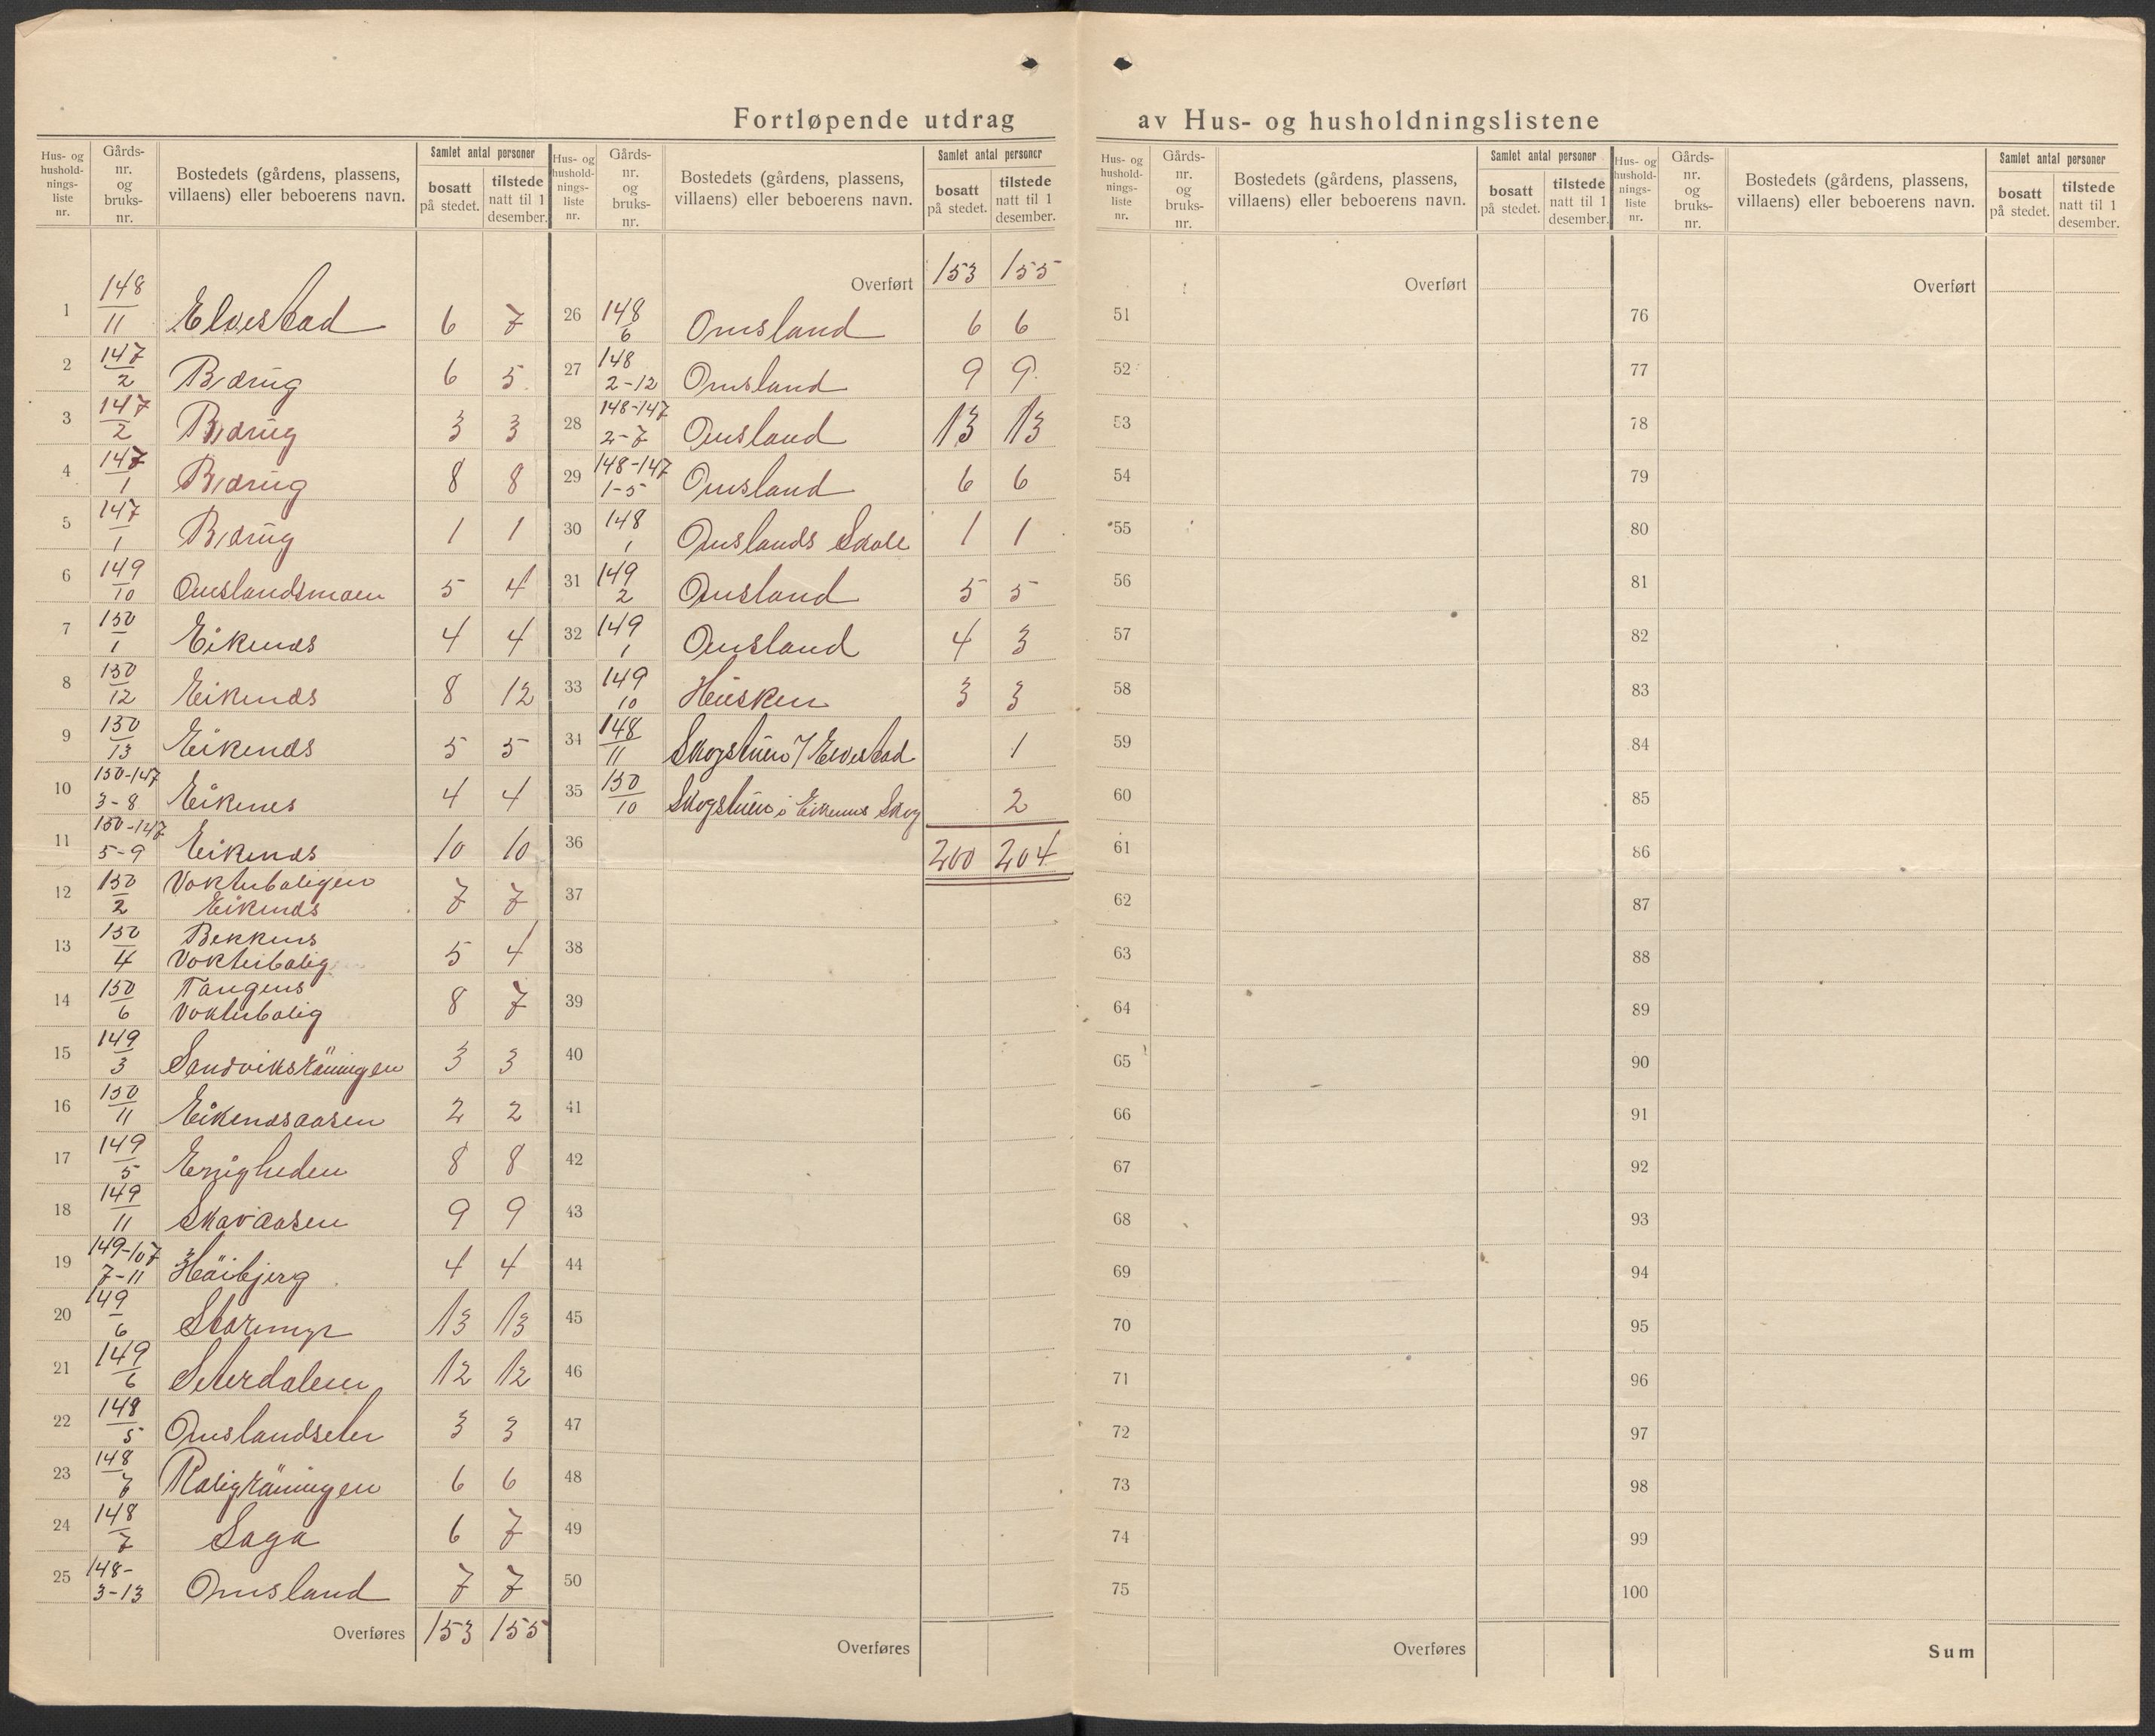 Fortløpende utdrag av Hus- og husholdningslistene
Hus- og hushold- nings- liste nr. | Gårds- nr. og bruks- nr. | Bostedets (gårdens, plassens, villaens) eller beboerens navn. | Samlet antal personer | bosatt på stedet. | tilstede natt til 1 desember.
1 148/11 Elvestad 6 7
2 147/2 Bjørug 6 5
3 147/2 Bjørug 3 3
4 147/1 Bjørug 8 8
5 147/1 Bjørug 1 1
6 149/10 Omslandsmoen 5 4
7 150/1 Eikenæs 4 4
8 150/12 Eikenæs 8 12
9 150/13 Eikenæs 5 5
10 150-147 3-8 Eikenes 4 4
11 150-147 5-9 Eikenæs 10 10
12 150/2 Vokterboligen
Eikenæs 7 7
13 150/4 Bekkens
Vokterbolig 5 4
14 150/6 Tangens
Vokterbolig 8 7
15 149/3 Sandviksröningen 3 3
16 150/11 Eikenæsaasen 2 2
17 149/5 Enigheden 8 8
18 149/11 Skavaasen 9 9
19 149-107 7-11 Höibjerg 4 4
20 149/6 Storemyr 13 13
21 149/6 Seterdalen 12 12
22 148/5 Omslandseter 3 3
23 148/7 6 6
24 148/7 Saga 6 7
25 148- 3-13 Omsland 7 7
Overføres 153 155
Hus- og hushold- nings- liste nr. | Gårds- nr. og bruks- nr. | Bostedets (gårdens, plassens, villaens) eller beboerens navn. | Samlet antal personer | bosatt på stedet. | tilstede natt til 1 desember.
Overført 153 155
26 148/6 Omsland 6 6
27 148 2-12 Omsland 9 9
28 148-147 2-7 Omsland 13 13
29 148-147 1-5 Omsland 6 6
30 148/1 Omslands Skole 1 1
31 149/2 Omsland 5 5
32 149/1 Omsland 4 3
33 149/10 Heisken 3 3
34 148/11 Skogstuen / Elvestad 1
35 150/10 Skogstuen i Eikenæs Skog 2
36 200 204
37
38
39
40
41
42
43
44
45
46
47
48
49
50
Overføres
Hus- og hushold- nings- liste nr. | Gårds- nr. og bruks- nr. | Bostedets (gårdens, plassens, villaens) eller beboerens navn. | Samlet antal personer | bosatt på stedet. | tilstede natt til 1 desember.
Overført
51
52
53
54
55
56
57
58
59
60
61
62
63
64
65
66
67
68
69
70
71
72
73
74
75
Overføres
Hus- og hushold- nings- liste nr. | Gårds- nr. og bruks- nr. | Bostedets (gårdens, plassens, villaens) eller beboerens navn. | Samlet antal personer | bosatt på stedet. | tilstede natt til 1 desember.
Overført
76
77
78
79
80
81
82
83
84
85
86
87
88
89
90
91
92
93
94
95
96
97
98
99
100
Sum